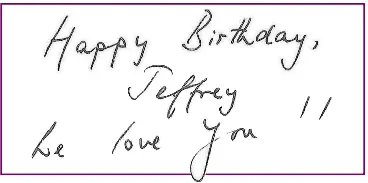 Happy Birthday,
Jeffrey
We love you !!